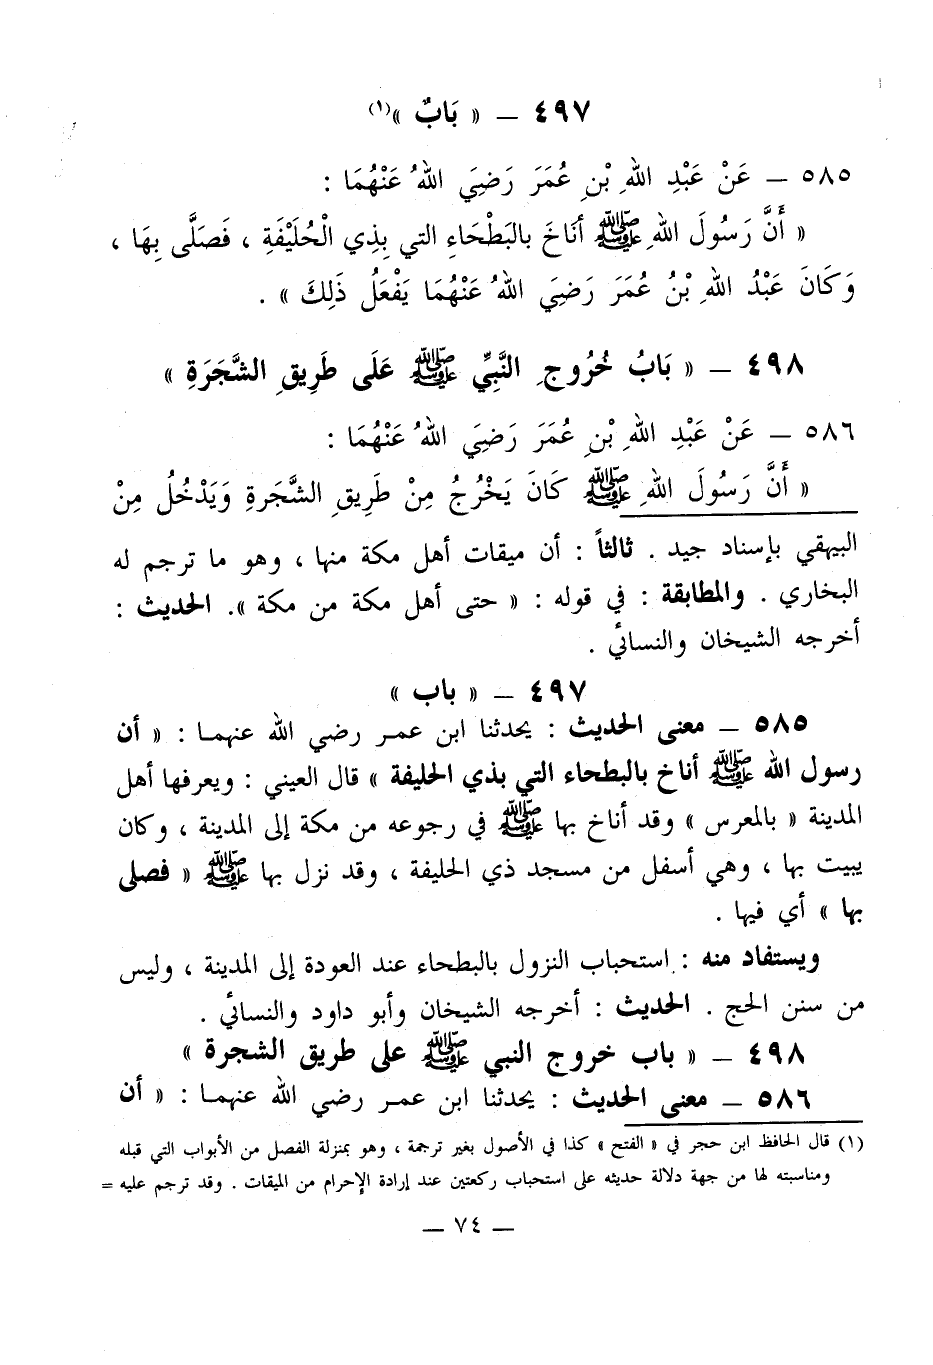 ٤٩٧ – « بَابٌ »(١)
٥٨٥ – عَنْ عَبْدِ اللهِ بْنِ عُمَرَ رَضِيَ اللهُ عَنْهُمَا :
« أَنَّ رَسُولَ اللهِ ﷺ أنَاخَ بالبَطْحَاءِ التي بِذِي الْحُلَيْفَةِ ، فَصَلَّى بِهَا ،
وَكَانَ عَبْدُ اللهِ بْنُ عُمَرَ رَضِيَ اللهُ عَنْهُمَا يَفْعَلُ ذَلِكَ » .
٤٩٨ – « بَابُ خُرُوجِ النَّبِيِّ ﷺ عَلَى طَرِيقِ الشَّجَرَةِ »
٥٨٦ – عَنْ عَبْدِ اللهِ بْنِ عُمَرَ رَضِيَ اللهُ عَنْهُمَا :
« أَنَّ رَسُولَ اللهِ ﷺ كَانَ يَخْرُجُ مِنْ طَرِيقِ الشَّجَرةِ وَيَدْخُلُ مِنْ
البيهقي بإسناد جيد . ثالثاً : أن ميقات أهل مكة منها ، وهو ما ترجم له
البخاري . والمطابقة : في قوله : « حتى أهل مكة من مكة ». الحديث :
أخرجه الشيخان والنسائي .
٤٩٧ – « باب »
٥٨٥ – معنى الحديث : يحدثنا ابن عمر رضي الله عنهما : « أن
رسول الله ﷺ أناخ بالبطحاء التي بذي الحليفة » قال العيني : ويعرفها أهل
المدينة « بالمعرس » وقد أناخ بها ﷺ في رجوعه من مكة إلى المدينة ، وكان
يبيت بها ، وهي أسفل من مسجد ذي الحليفة ، وقد نزل بها ﷺ « فصلى
بها » أي فيها .
ويستفاد منه : استحباب النزول بالبطحاء عند العودة إلى المدينة ، وليس
من سنن الحج . الحديث : أخرجه الشيخان وأبو داود والنسائي .
٤٩٨ – « باب خروج النبي ﷺ على طريق الشجرة »
٥٨٦ – معنى الحديث : يحدثنا ابن عمر رضي الله عنهما : « أن
(١) قال الحافظ ابن حجر في « الفتح » كذا في الأصول بغير ترجمة ، وهو بمنزلة الفصل من الأبواب التي قبله
ومناسبته لها من جهة دلالة حديثه على استحباب ركعتين عند إرادة الإحرام من الميقات . وقد ترجم عليه =
– ٧٤ –